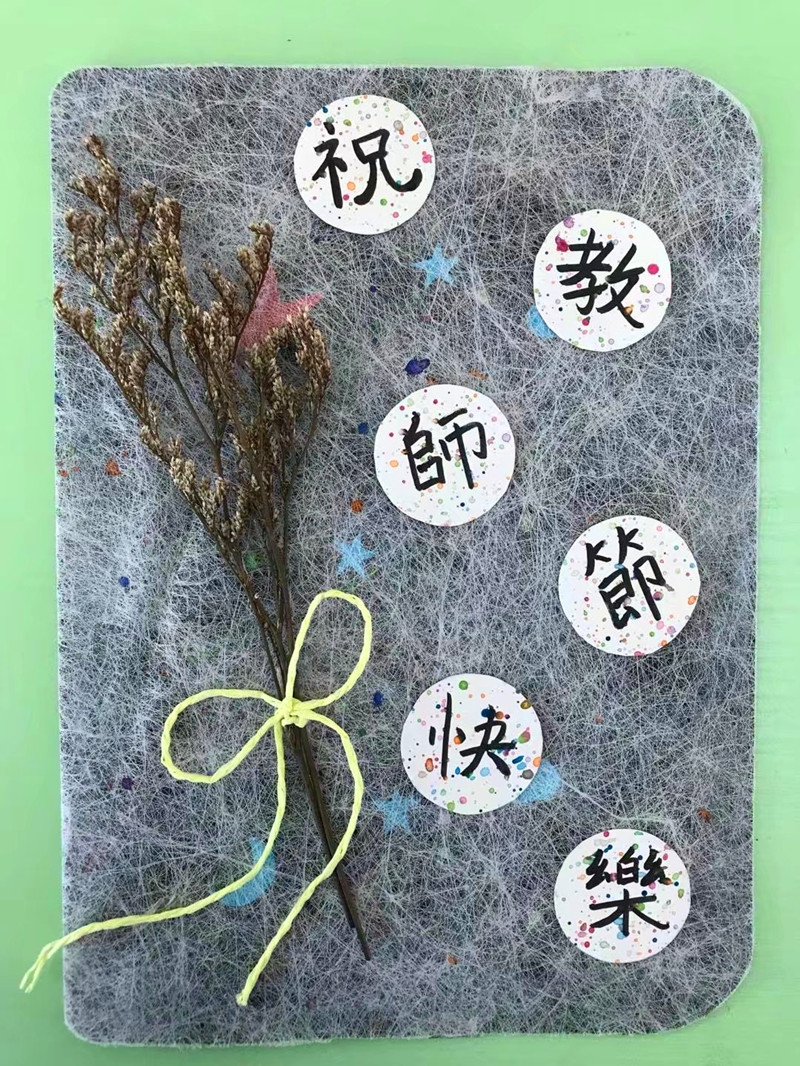 祝
教
師
節
快
樂